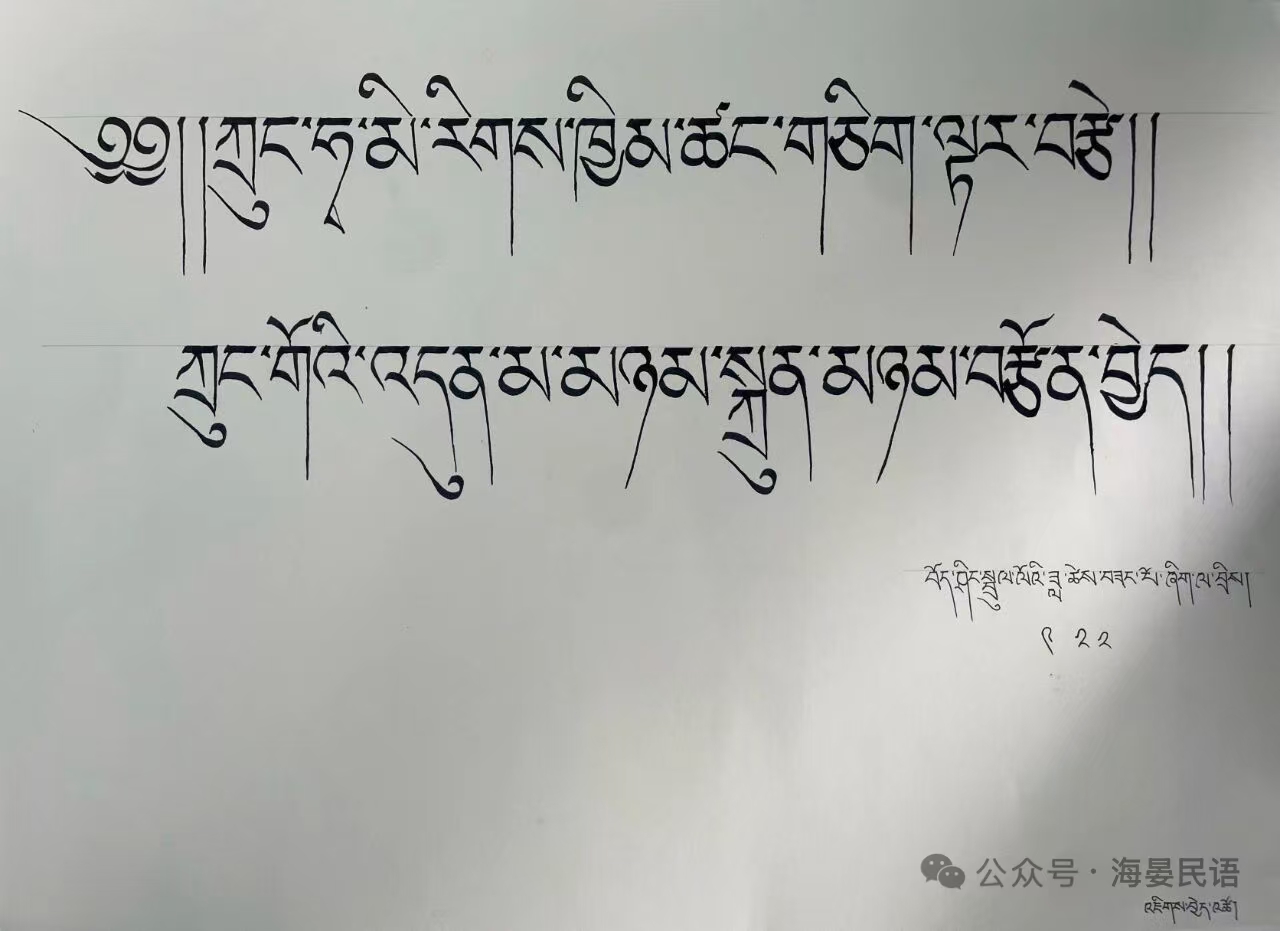 ༄༅།།ཀྲུང་ཧྭ་མི་རིགས་ཁྱིམ་ཚང་གཅིག་ལྟར་བརྩེ།།
ཀྲུང་གོའི་འདུན་མ་མཉམ་སྐྲུན་མཉམ་བརྩོན་བྱེད།།
བོད་ཤིང་སྦྲུལ་ལོའི་ཟླ་ཚེས་བཟང་པོ་ཞིག་ལ་བྲིས།
༩ ༢༢
公众号 · 海晏民语
འཇིགས་བྱེད་འཚོ།